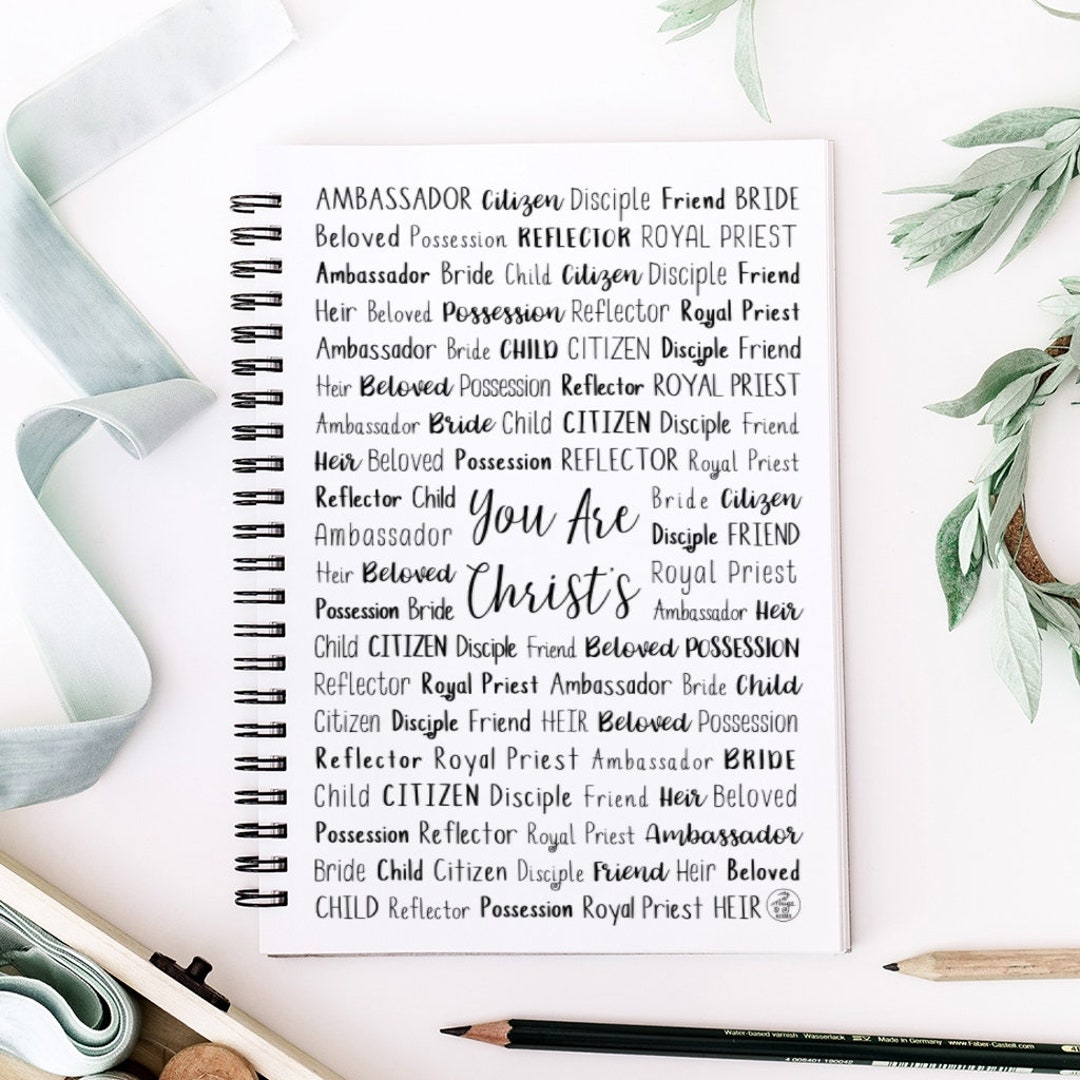 AMBASSADOR Citizen Disciple Friend BRIDE
Beloved Possession REFLECTOR ROYAL PRIEST
Ambassador Bride Child Citizen Disciple Friend
Heir Beloved Possession Reflector Royal Priest
Ambassador Bride CHILD CITIZEN Disciple Friend
Heir Beloved Possession Reflector ROYAL PRIEST
Ambassador Bride Child CITIZEN Disciple Friend
Heir Beloved Possession REFLECTOR Royal Priest
Reflector Child You Are Bride Citizen
Ambassador Disciple FRIEND
Heir Beloved Christ's Royal Priest
Possession Bride Ambassador Heir
Child CITIZEN Disciple Friend Beloved POSSESSION
Reflector Royal Priest Ambassador Bride Child
Citizen Disciple Friend HEIR Beloved Possession
Reflector Royal Priest Ambassador BRIDE
Child CITIZEN Disciple Friend Heir Beloved
Possession Reflector Royal Priest Ambassador
Bride Child Citizen Disciple Friend Heir Beloved
CHILD Reflector Possession Royal Priest HEIR
Water-based varnish Wasserlack EV Made in Germany www.Faber-Castell.com
4 005401 190042